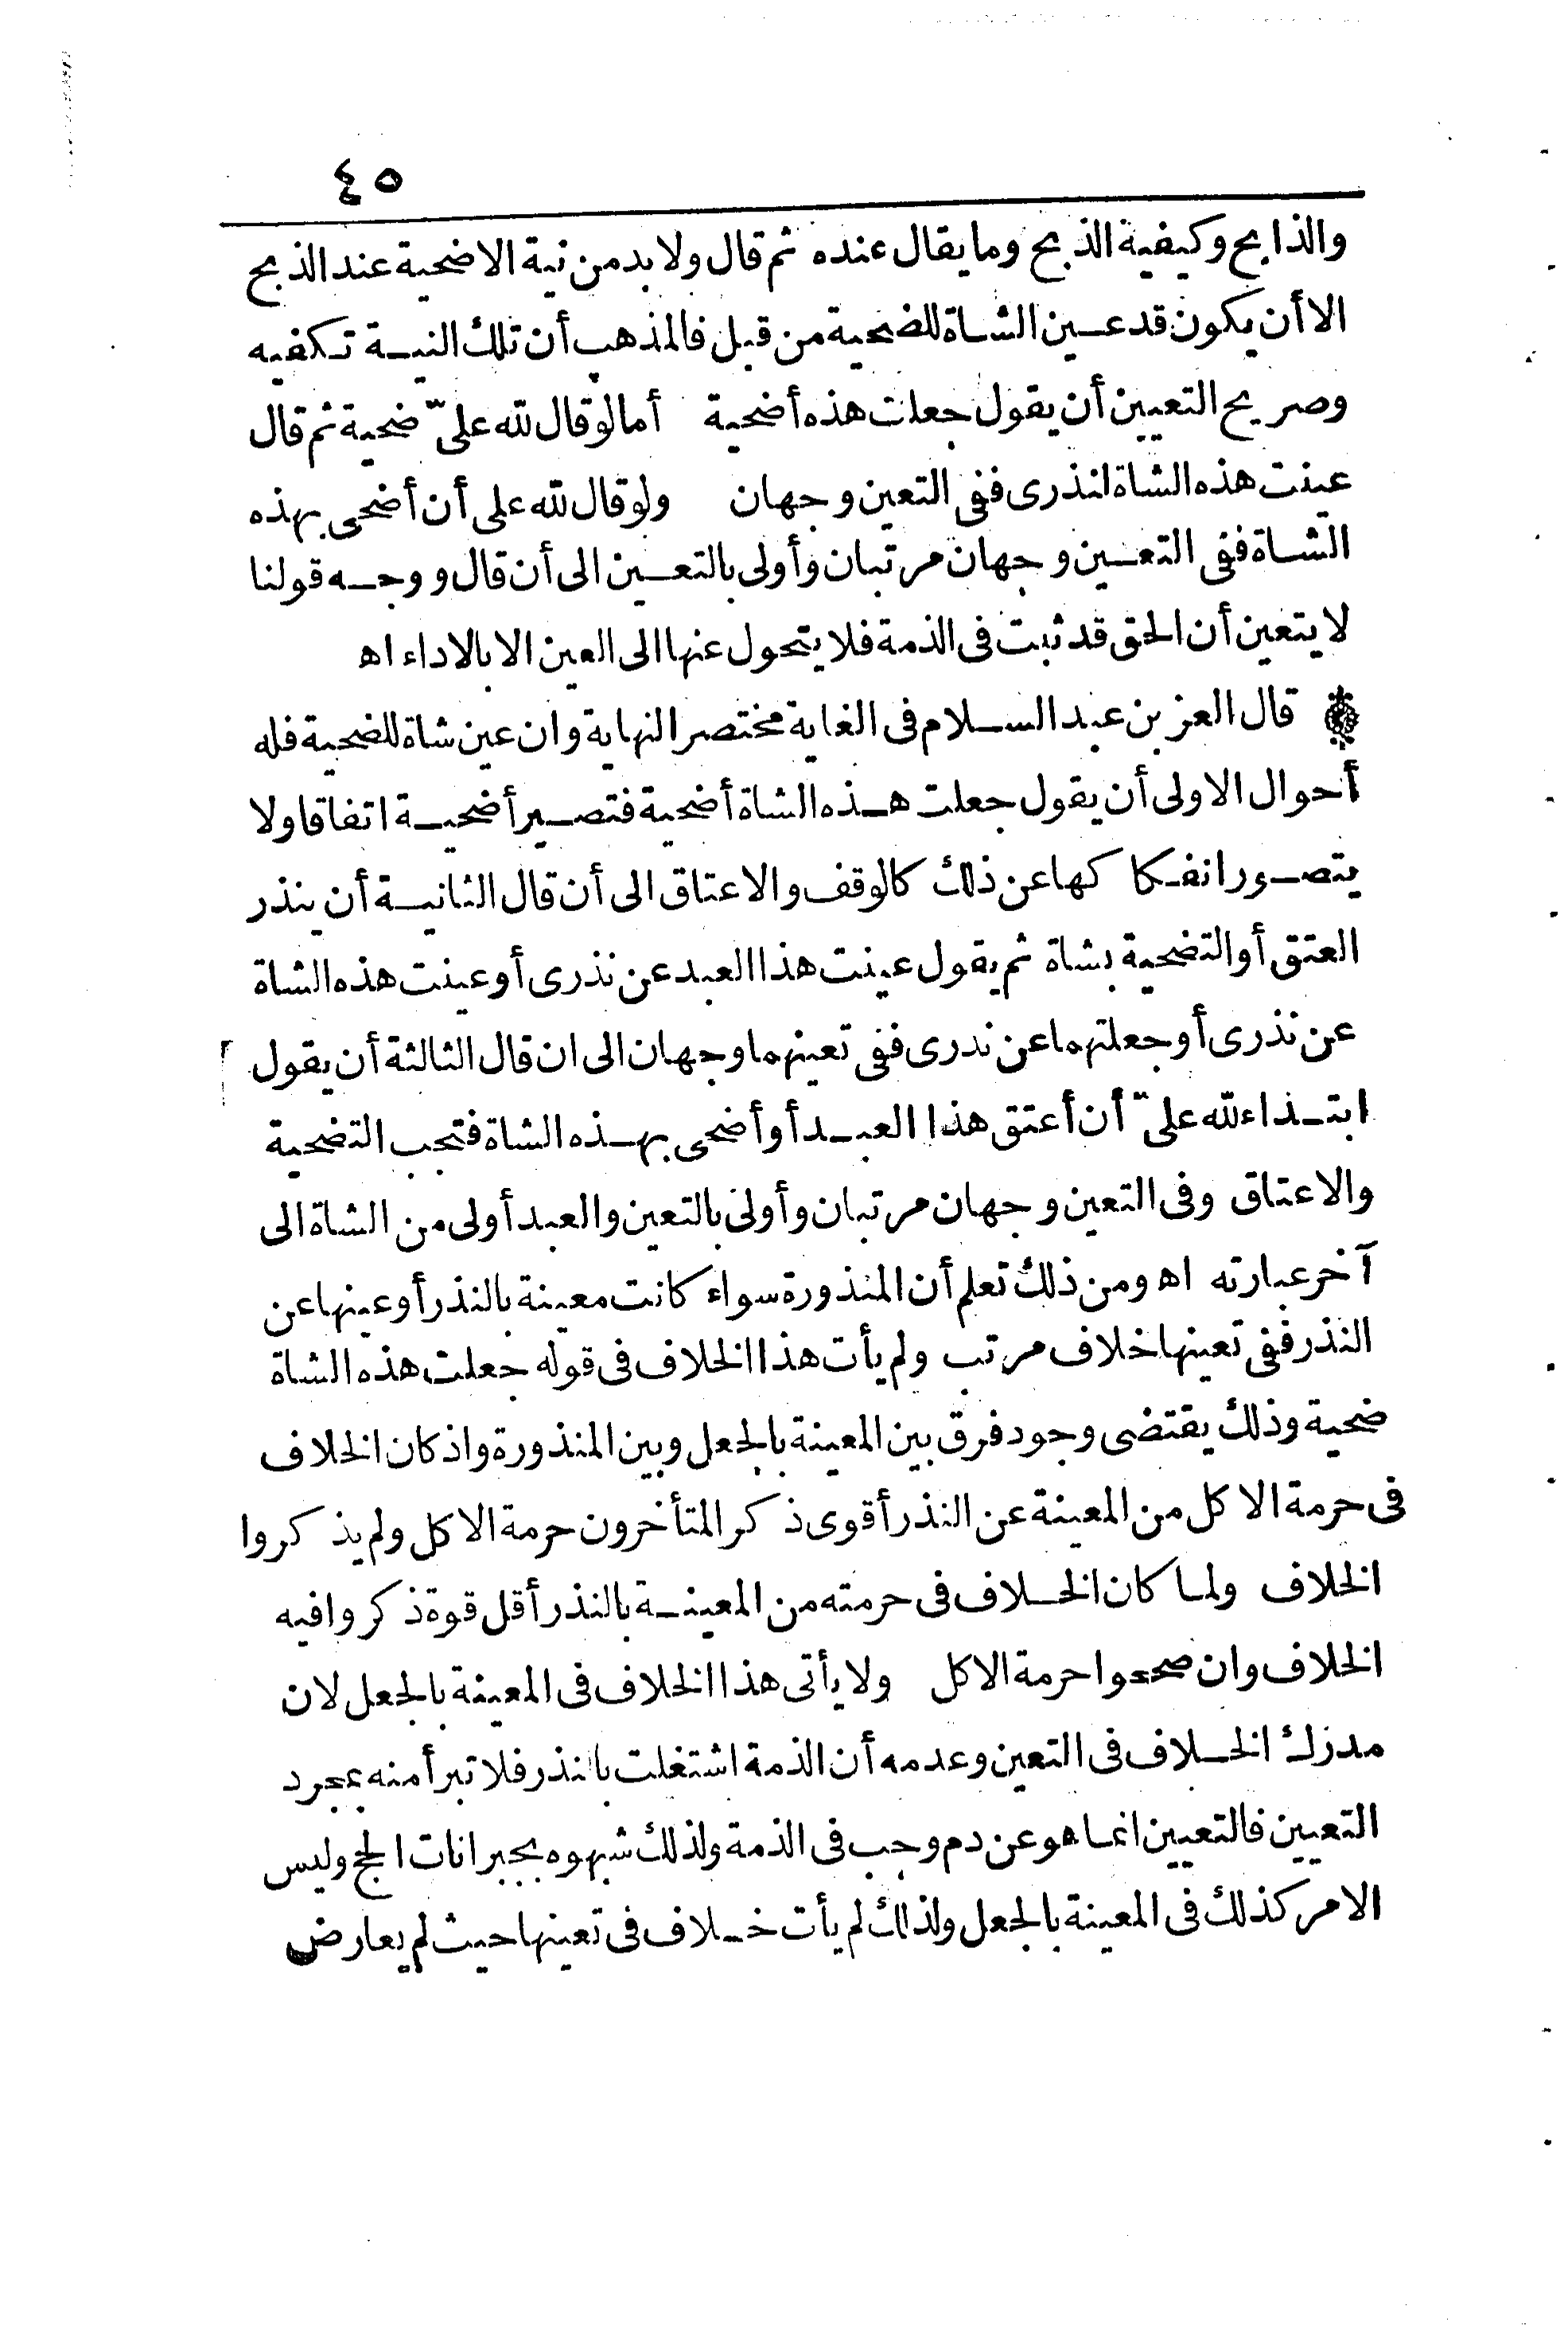 ٤٥
والذابح وكيفية الذبح وما يقال عنده ثم قال ولا بد من نية الاضحية عند الذبح
الا أن يكون قد عين الشاة للضحية من قبل فالمذهب أن تلك النية تكفيه
وصريح التعيين أن يقول جعلت هذه أضحية أما لو قال لله علىّ ضحية ثم قال
عينت هذه الشاة لنذرى ففى التعين وجهان ولو قال لله على أن أضحى بهذه
الشاة ففى التعين وجهان مرتبان وأولى بالتعين الى أن قال ووجه قولنا
لا يتعين أن الحق قد ثبت فى الذمة فلا يتحول عنها الى العين الا بالاداء اه
قال العز بن عبد السلام فى الغاية مختصر النهاية وان عين شاة للضحية فله
أحوال الاولى أن يقول جعلت هذه الشاة أضحية فتصير أضحية اتفاقا ولا
يتصور انفكاكها عن ذلك كالوقف والاعتاق الى أن قال الثانية أن ينذر
العتق أو التضحية بشاة ثم يقول عينت هذا العبد عن نذرى أو عينت هذه الشاة
عن نذرى أو جعلتهما عن ندرى ففى تعينهما وجهان الى ان قال الثالثة أن يقول
ابتذاء لله علىّ أن أعتق هذا العبد أو أضحى بهذه الشاة فتجب التضحية
والاعتاق وفى التعين وجهان مرتبان وأولى بالتعين والعبد أولى من الشاة الى
آخر عبارته اه ومن ذلك تعلم أن المنذورة سواء كانت معينة بالنذر أو عينها عن
النذر ففى تعينها خلاف مرتب ولم يأت هذا الخلاف فى قوله جعلت هذه الشاة
ضحية وذلك يقتضى وجود فرق بين المعينة بالجعل وبين المنذورة واذ كان الخلاف
فى حرمة الاكل من المعينة عن النذر أقوى ذكر المتأخرون حرمة الاكل ولم يذكروا
الخلاف ولما كان الخلاف فى حرمته من المعينة بالنذر أقل قوة ذكروا فيه
الخلاف وان صححوا حرمة الاكل ولا يأتى هذا الخلاف فى المعينة بالجعل لان
مدرك الخلاف فى التعين وعدمه أن الذمة اشتغلت بالنذر فلا تبرأ منه بمجرد
التعيين فالتعيين انما هو عن دم وجب فى الذمة ولذلك شبهوه بجبرانات الحج وليس
الامر كذلك فى المعينة بالجعل ولذلك لم يأت خلاف فى تعينها حيث لم يعارض